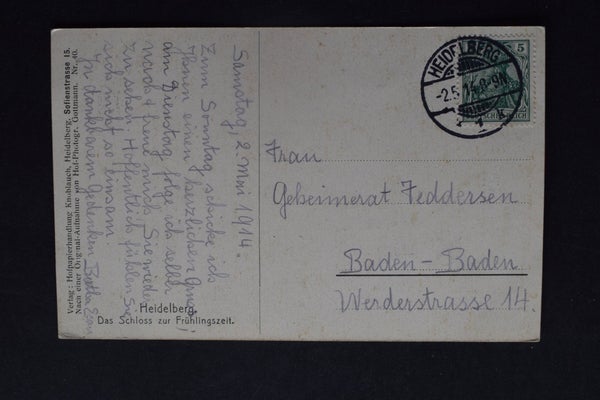 Samstag, 2. Mai 1914.
Zum Sonntag schicke ich
Ihnen einen herzlichen Gruss,
am Dienstag folge ich selbst
nach & freue mich Sie wieder
zu sehen. Hoffentlich fühlen Sie
sich nicht so einsam
In dankbarem Gedenken Bertha
Heidelberg.
Das Schloss zur Frühlingszeit.
Verlag: Hofpapierhandlung Knoblauch, Heidelberg, Sofienstrasse 15.
Nach einer Original-Aufnahme von Hof-Photogr. Gottmann. Nr. 40.
HEIDELBERG
-2.5.14.8-9N
5
Frau
Geheimerat Feddersen
Baden-Baden
Werderstrasse 14.